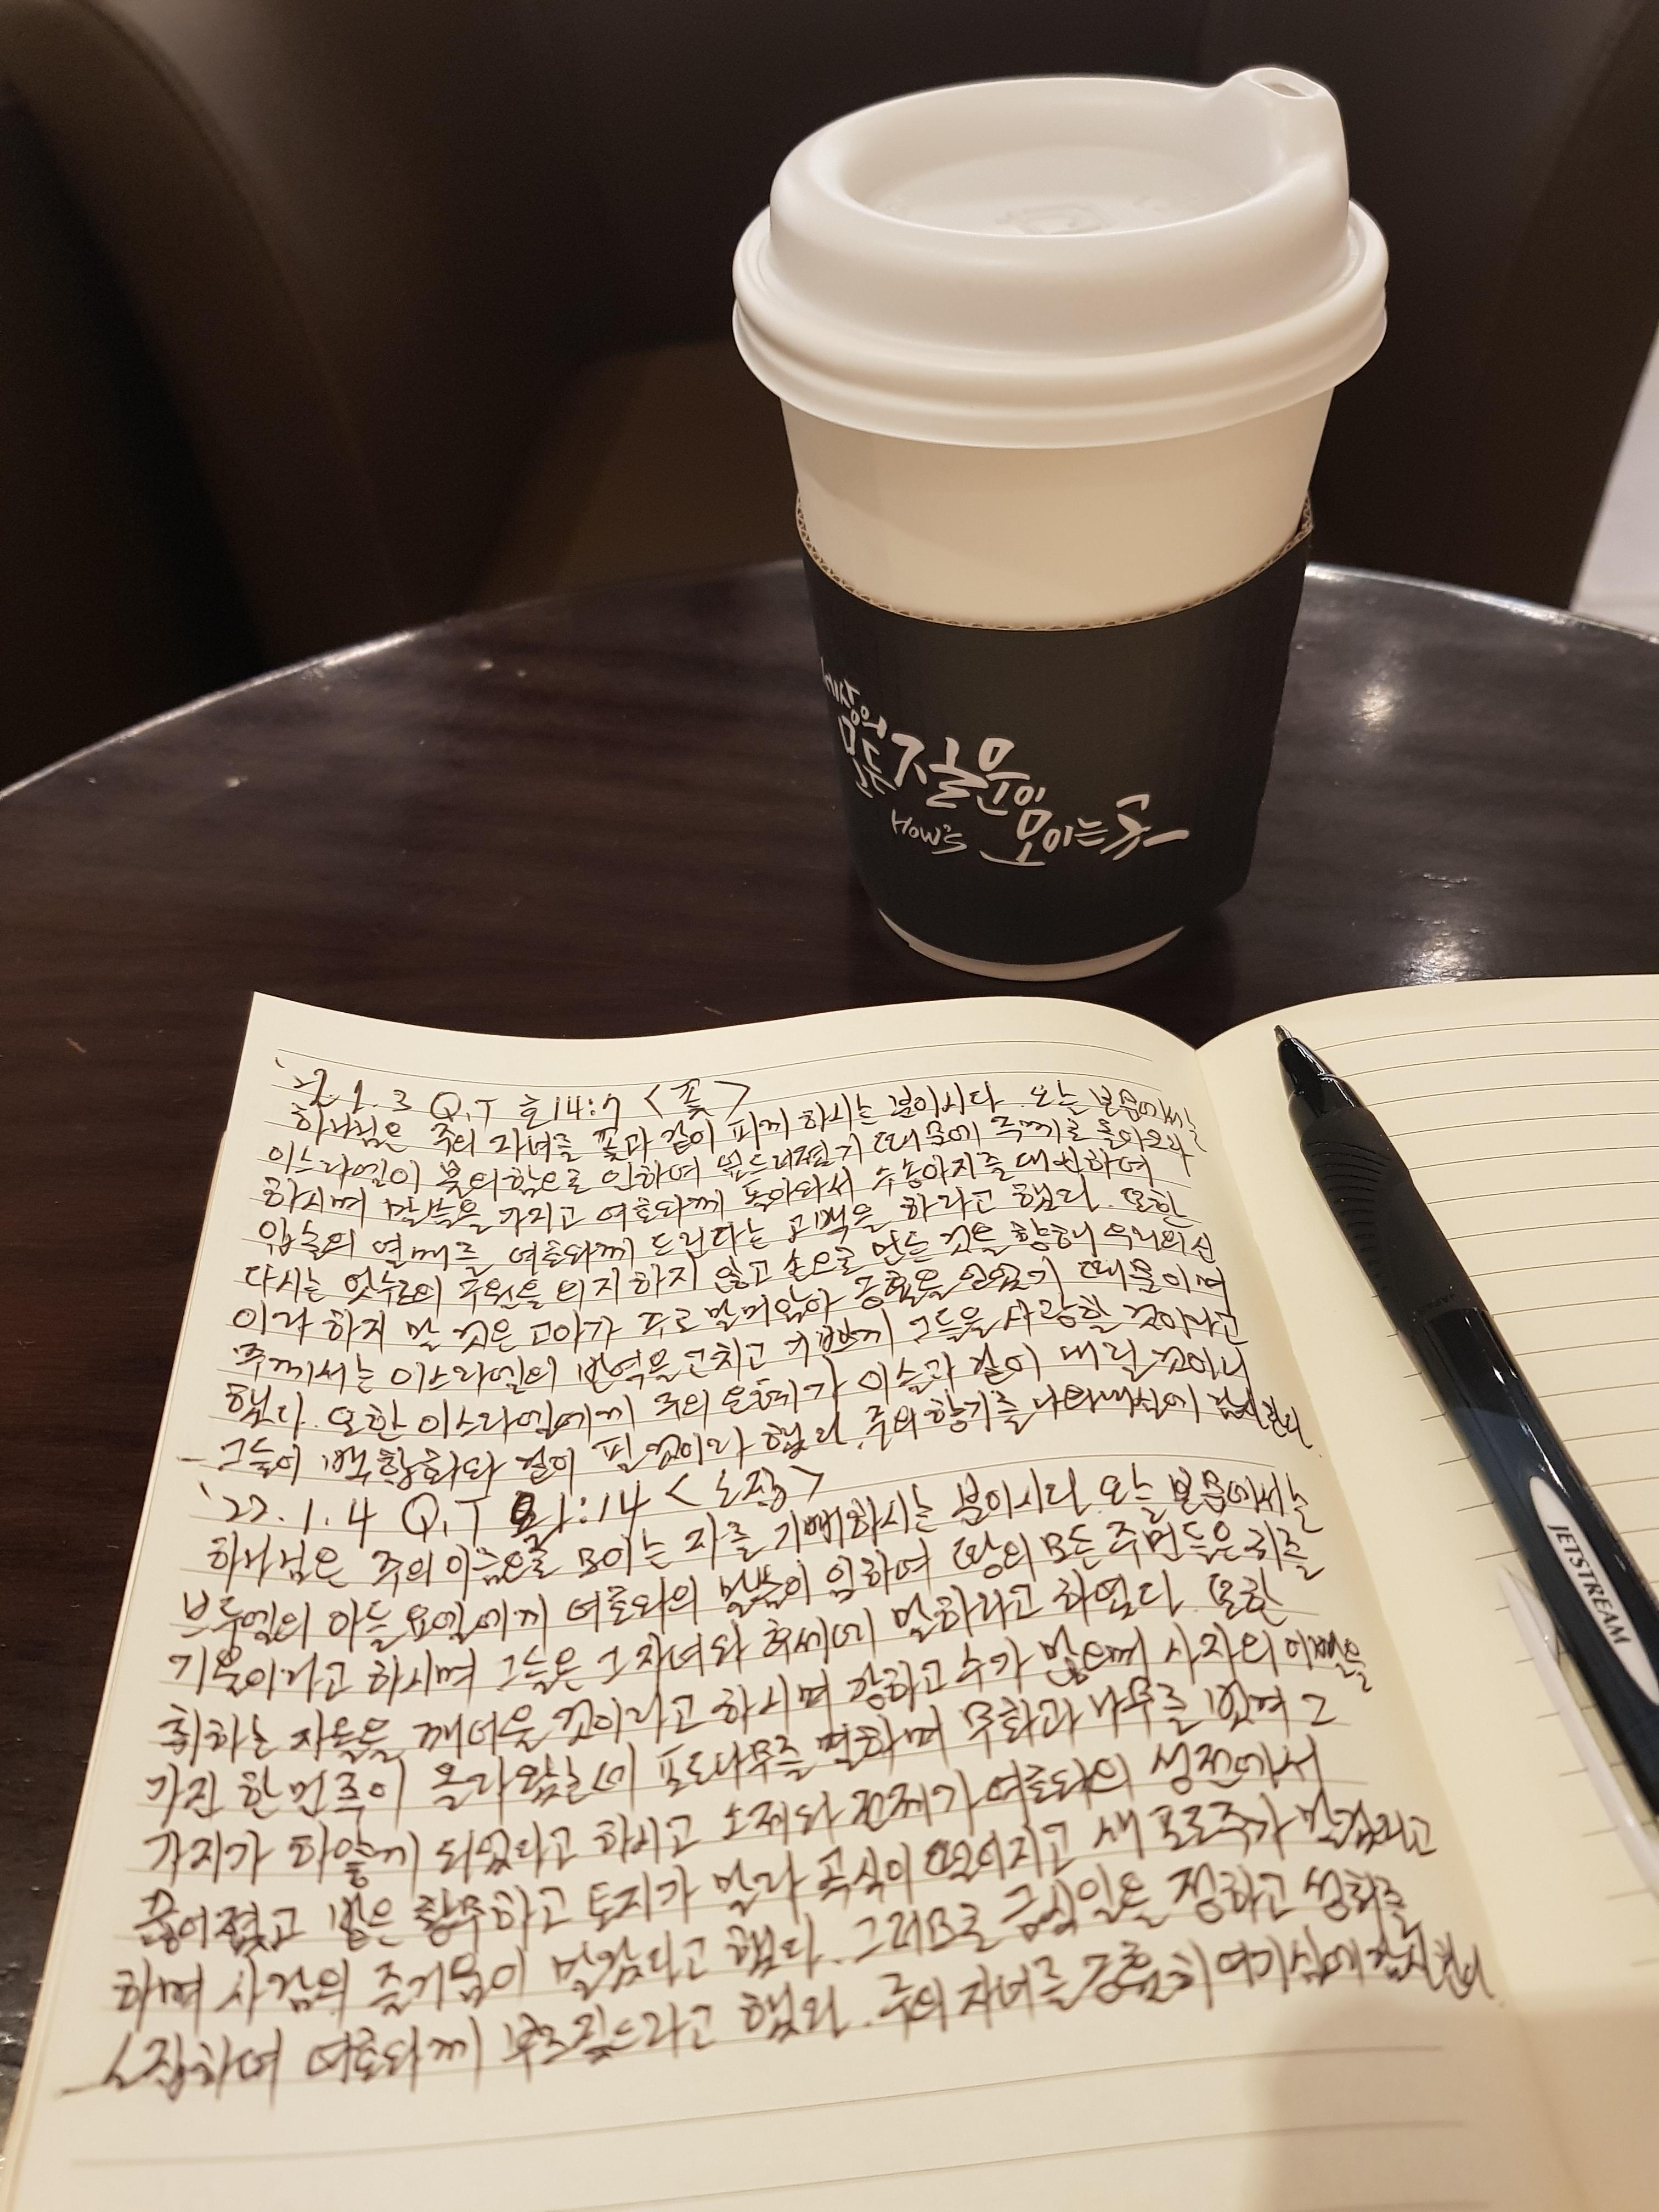 세상의
모든 질문이
How's 모이는 곳
'22. 1. 3 Q.T 호 14:7 <꽃>
하나님은 주의 자녀를 꽃과 같이 피게 하시는 분이시다. 오늘 본문에서는
이스라엘이 불의함으로 인하여 엎드러졌기 때문에 주께로 돌아오라
하시며 말씀을 가지고 여호와께 돌아와서 수송아지를 대신하여
입술의 열매를 여호와께 드린다는 고백을 하라고 했다. 또한
다시는 앗수르의 구원을 의지하지 않고 손으로 만든 것을 향해 우리의 신
이라 하지 말 것은 고아가 주로 말미암아 긍휼을 얻었기 때문이며
주께서는 이스라엘의 반역을 고치고 기쁘게 그들을 사랑할 것이라고
했다. 또한 이스라엘에게 주의 은혜가 이슬과 같이 내릴 것이니
그들이 백합화와 같이 필 것이라 했다. 주의 향기를 나타내심에 감사한다.
'22. 1. 4 Q.T 욜 1:14 <소집>
하나님은 주의 이름으로 모이는 자를 기뻐하시는 분이시다. 오늘 본문에서는
브두엘의 아들 요엘에게 여호와의 말씀이 임하여 땅의 모든 주민들은 귀를
기울이라고 하시며 그들은 그 자녀와 후세에 말하라고 하였다. 또한
취하는 자들을 깨어 울 것이라고 하시며 강하고 수가 많으며 사자의 어금니를
가진 한 민족이 올라왔는데 포도나무를 멸하며 무화과 나무를 벗겨 그
가지가 하얗게 되었다고 하시고 소제와 전제가 여호와의 성전에서
끊어졌고 밭은 황무하고 토지가 말라 곡식이 떨어지고 새 포도주가 말랐다고
하며 사람의 즐거움이 말랐다고 했다. 그러므로 금식일을 정하고 성회를
소집하여 여호와께 부르짖으라고 했다. 주의 자녀를 긍휼히 여기심에 감사한다.
JETSTREAM